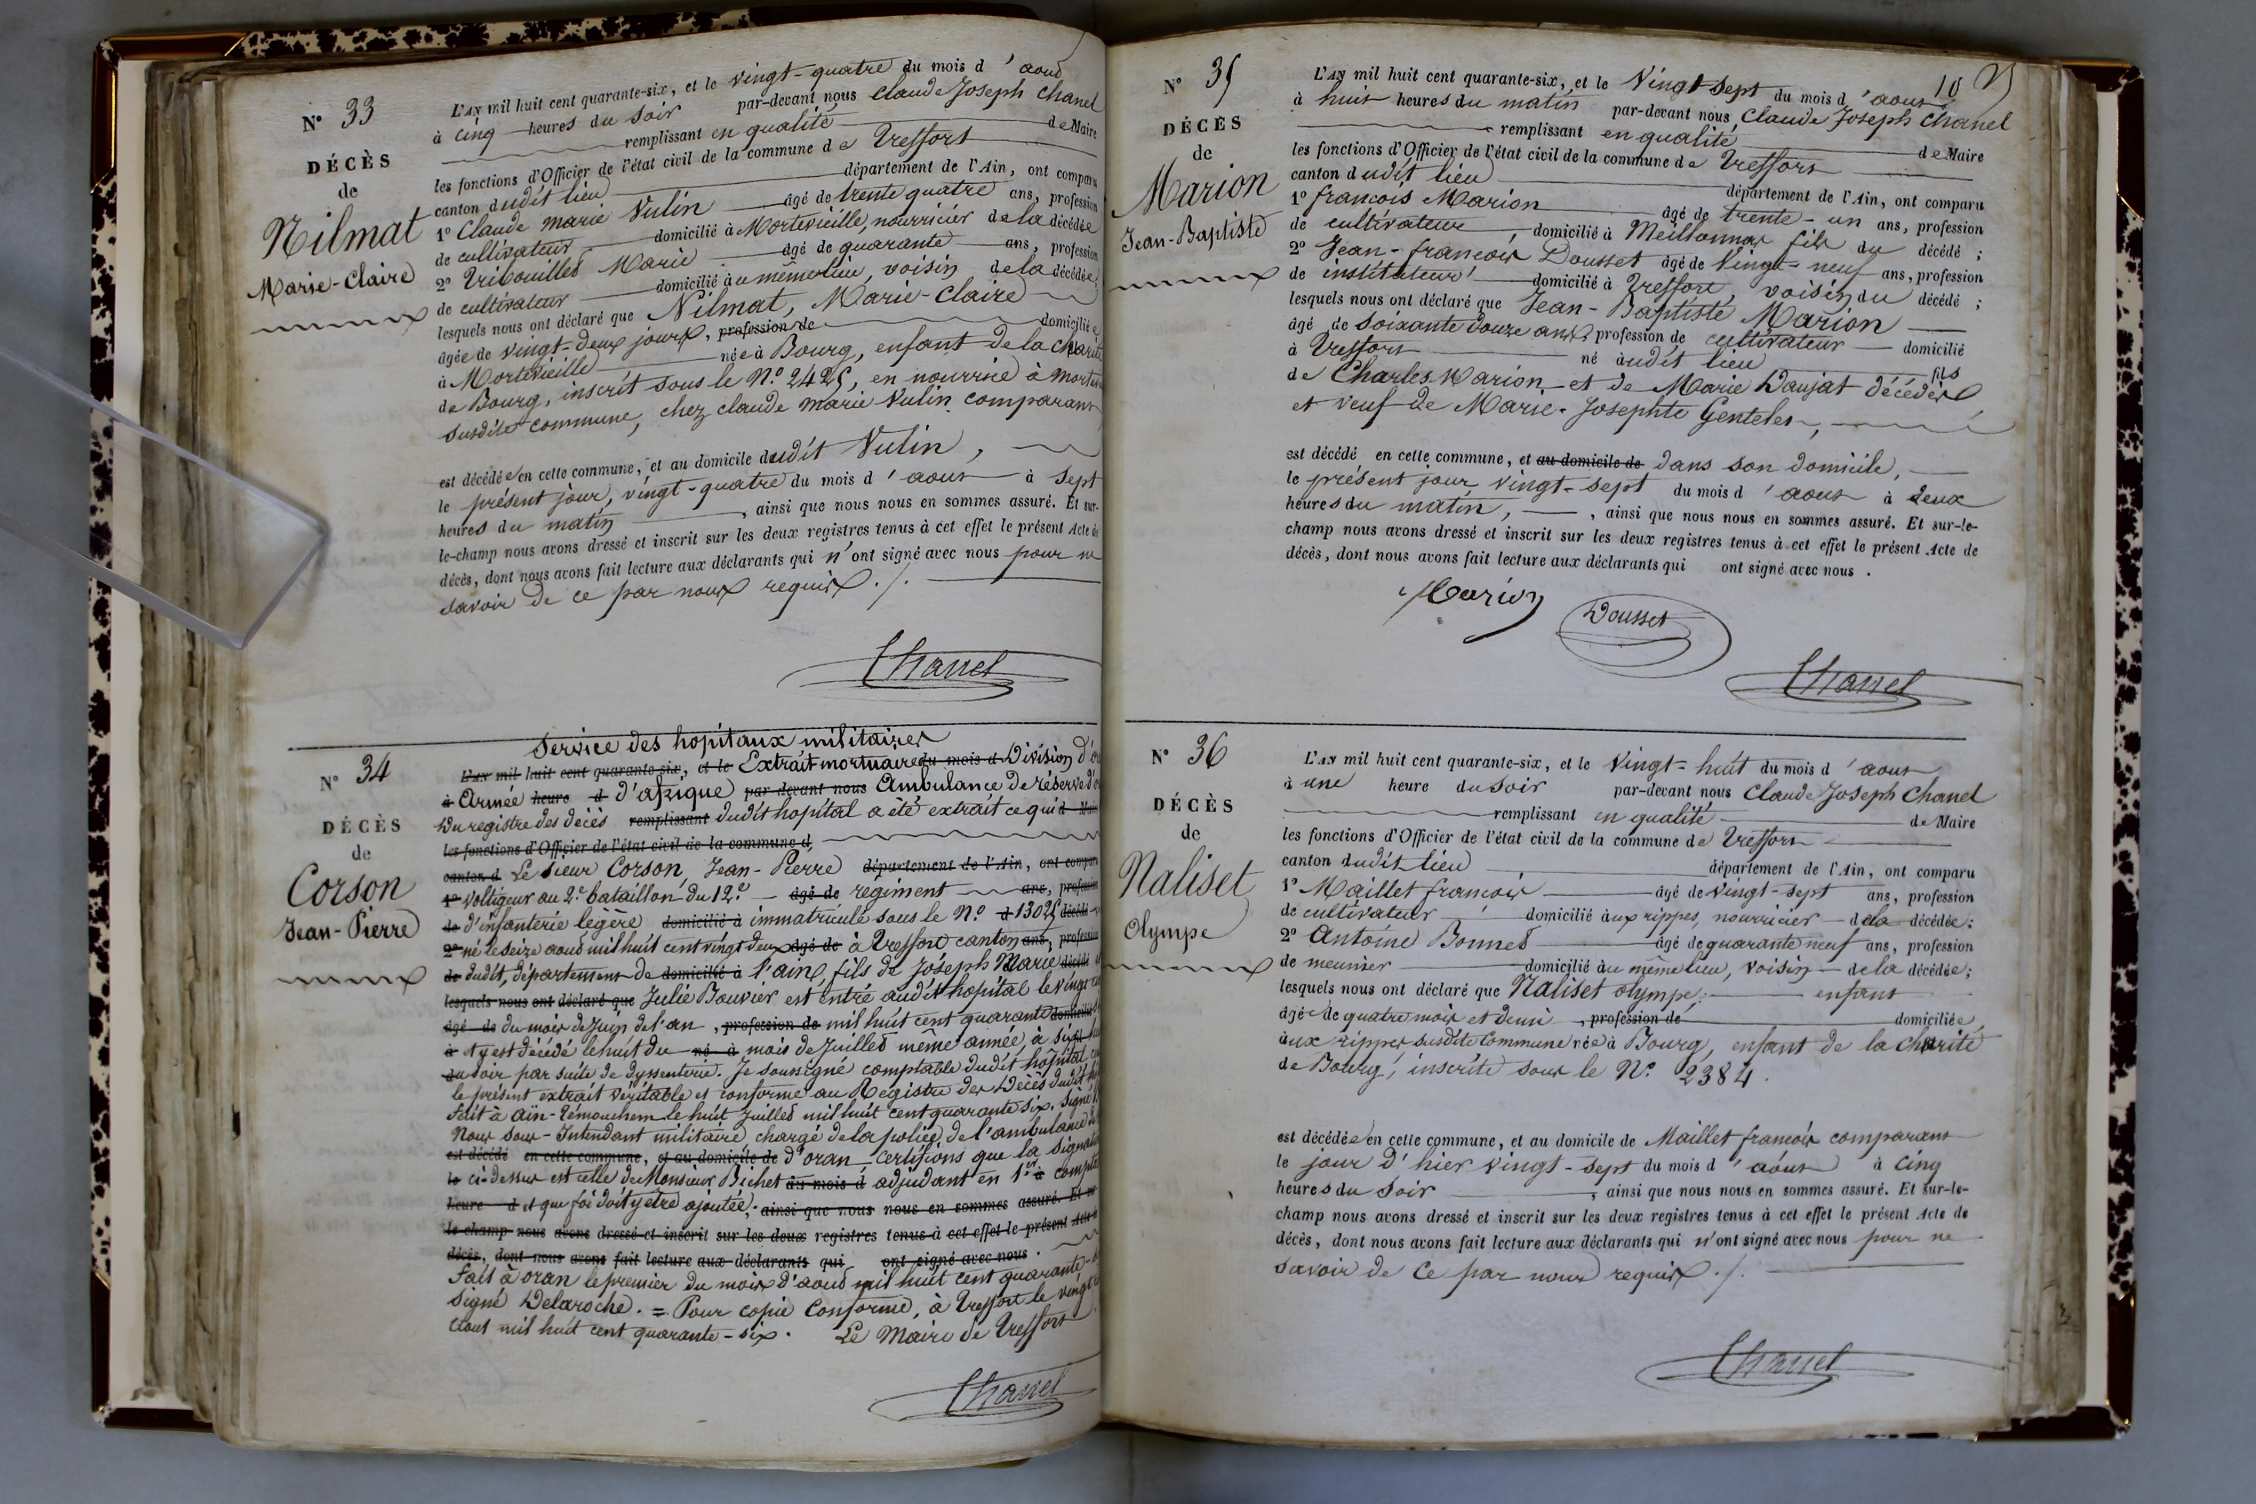 N° 33
DÉCÈS
de
Nilmat
Marie-Claire
L'AN mil huit cent quarante-six, et le vingt-quatre du mois d'aoud
à cinq heures du soir par-devant nous Claude Joseph Chanel
remplissant en qualité de Maire
les fonctions d'Officier de l'état civil de la commune de Treffort
canton dudit lieu département de l'Ain, ont comparu
1° Claude Marie Vulin âgé de trente quatre ans, profession
de cultivateur domicilié à Mortevieille, nourricier de la décédée
2° Tribouillet Marie âgé de quarante ans, profession
de cultivateur domicilié au même lieu, voisin de la décédée;
lesquels nous ont déclaré que Nilmat, Marie-Claire
âgée de vingt-deux jours, profession de domiciliée
à Mortevieille née à Bourg, enfant de la charité
de Bourg, inscrit sous le N.° 2425, en nourrice à
susdite commune, chez claude marie Vulin comparant
est décédée en cette commune, et au domicile dudit Vulin,
le présent jour, vingt-quatre du mois d'aout à sept
heures du matin, ainsi que nous nous en sommes assuré. Et sur-
le-champ nous avons dressé et inscrit sur les deux registres tenus à cet effet le présent Acte de
décès, dont nous avons fait lecture aux déclarants qui n'ont signé avec nous pour ne
savoir de ce par nous requis ./.
Chanel
N° 34
DÉCÈS
de
Corson
Jean-Pierre
Service des hopitaux militaires
L'AN mil huit cent quarante-six, et le Extrait mortuaire du mois d Division
à Armée heure d d'afrique par-devant nous Ambulance de réserve
Du registre des décès remplissant dudit hopital a été extrait ce qui
les fonctions d'Officier de l'état civil de la commune d
canton d Le sieur Corson, Jean-Pierre département de l'Ain, ont comparu
1° voltigeur au 2.e bataillon du 12.e âgé de régiment ans, profession
de d'infanterie légère domicilié à immatriculé sous le N.° 13025 décédé
2° né le seize aoud mil huit cent vingt deux âgé de à Treffort canton ans, profession
de dudit, département de domicilié à l'ain, fils de Joseph Marie décédé
lesquels nous ont déclaré que Julie Bouvier est entré audit hopital le vingt
âgé de du mois de Juin de l'an, profession de mil huit cent quarante domicilié
à et y est décédé le huit du né à mois de Juillet même année, à
du soir par suite de dyssenterie. Je soussigné comptable dudit hopital
le présent extrait véritable et conforme au Registre des Décès dudit
fait à aïn-Témouchem le huit Juillet mil huit cent quarante six. signé
Nous sous-Intendant militaire chargé de la police de l'ambulance
est décédé en cette commune, et au domicile de d'oran certifions que la
le ci-dessus est celle de Monsieur Bichet du mois d adjudant en 1.er à
heure d et que foi doit y être ajoutée. ainsi que nous nous en sommes assuré. Et
le-champ nous avons dressé et inscrit sur les deux registres tenus à cet effet le présent Acte
décès, dont nous avons fait lecture aux déclarants qui ont signé avec nous.
fait à oran le premier du mois d'aoud mil huit cent quarante
signé Delaroche. = Pour copie conforme, à Treffort le vingt
Aout mil huit cent quarante-six. Le Maire de Treffort
Chanel
10
N° 35
DÉCÈS
de
Marion
Jean-Baptiste
L'AN mil huit cent quarante-six, et le Vingt sept du mois d'aout
à huit heures du matin par-devant nous Claude Joseph Chanel
remplissant en qualité de Maire
les fonctions d'Officier de l'état civil de la commune de Treffort
canton dudit lieu département de l'Ain, ont comparu
1° françois Marion âgé de trente-un ans, profession
de cultivateur, domicilié à Meillonnas fils du décédé;
2° Jean-françois Dousset âgé de vingt-neuf ans, profession
de instituteur domicilié à Treffort voisin du décédé;
lesquels nous ont déclaré que Jean-Baptiste Marion
âgé de soixante douze ans, profession de cultivateur domicilié
à Treffort né audit lieu fils
de Charles Marion et de Marie Daujat décédés
et veuf de Marie-Josephte Genteles,
est décédé en cette commune, et au domicile de dans son domicile,
le présent jour vingt-sept du mois d'aout à deux
heures du matin, , ainsi que nous nous en sommes assuré. Et sur-le-
champ nous avons dressé et inscrit sur les deux registres tenus à cet effet le présent Acte de
décès, dont nous avons fait lecture aux déclarants qui ont signé avec nous.
Marion
Dousset
Chanel
N° 36
DÉCÈS
de
Naliset
Olympe
L'AN mil huit cent quarante-six, et le vingt-huit du mois d'aout
à une heure du soir par-devant nous Claude Joseph Chanel
remplissant en qualité de Maire
les fonctions d'Officier de l'état civil de la commune de Treffort
canton dudit lieu département de l'Ain, ont comparu
1° Maillet françois âgé de vingt-sept ans, profession
de cultivateur domicilié aux rippes, nourricier de la décédée;
2° Antoine Bonnet âgé de quarante neuf ans, profession
de meunier domicilié au même lieu, voisin de la décédée;
lesquels nous ont déclaré que Naliset olympe, enfant
âgée de quatre mois et demi, profession de domiciliée
aux rippes susdite commune née à Bourg, enfant de la charité
de Bourg, inscrite sous le N.° 2384.
est décédée en cette commune, et au domicile de Maillet françois comparant
le jour d'hier vingt-sept du mois d'aout à cinq
heures du soir, ainsi que nous nous en sommes assuré. Et sur-le-
champ nous avons dressé et inscrit sur les deux registres tenus à cet effet le présent Acte de
décès, dont nous avons fait lecture aux déclarants qui n'ont signé avec nous pour ne
savoir de ce par nous requis ./.
Chanel